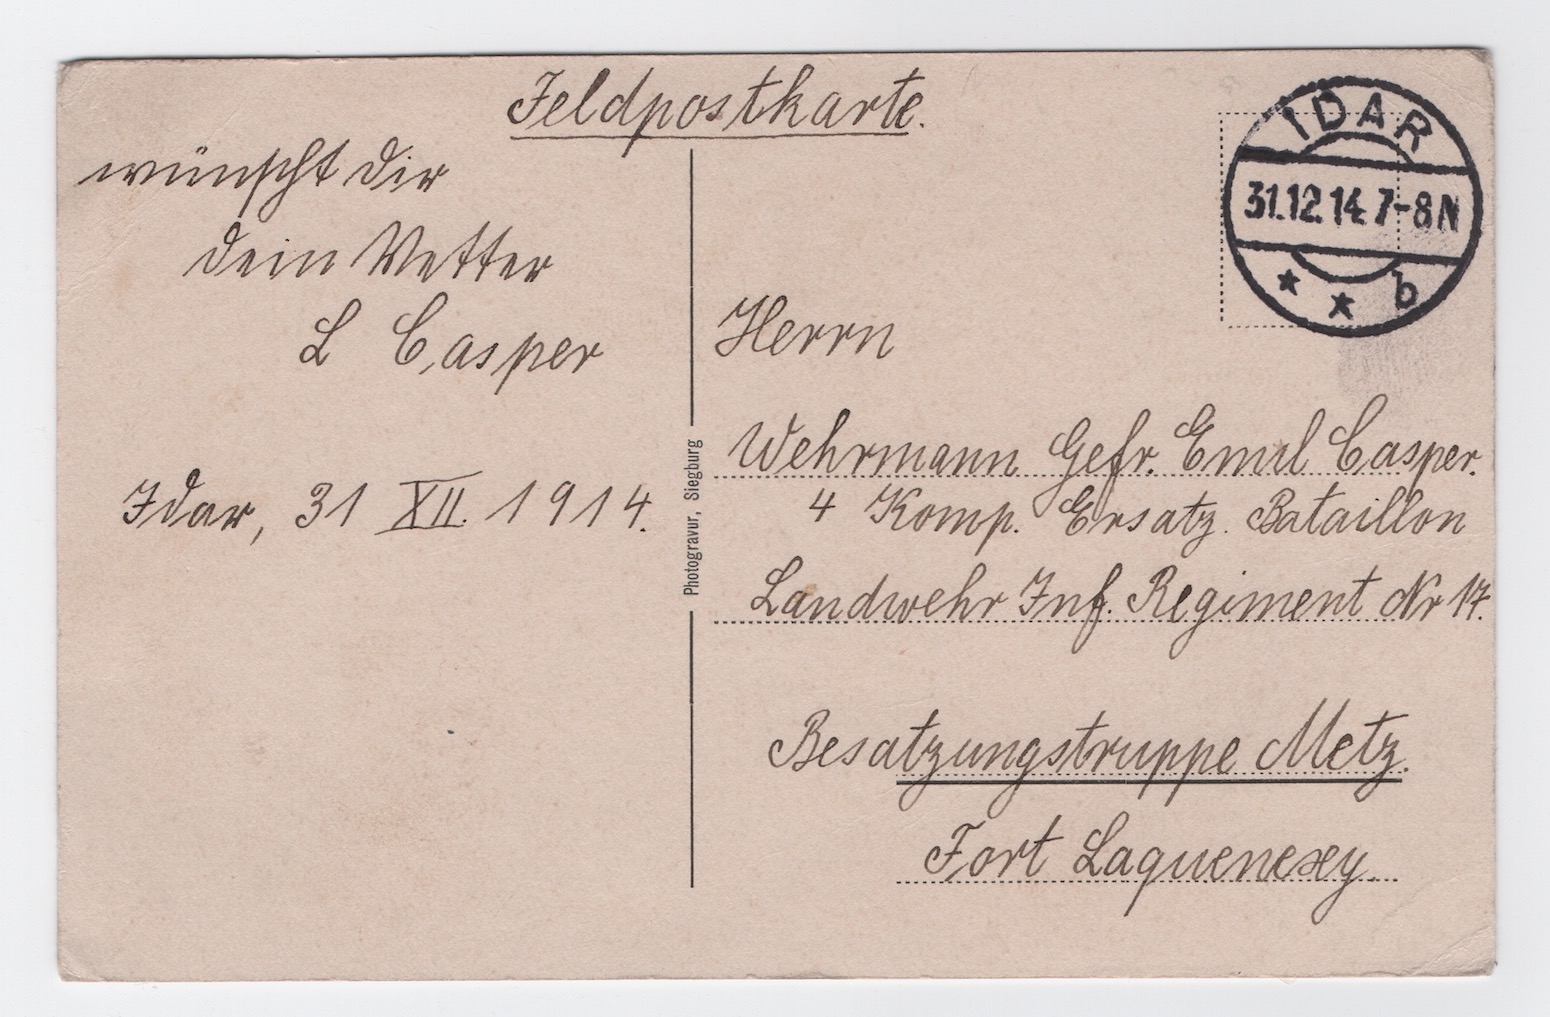 Feldpostkarte.
wünscht dir
dein Vetter
L Casper
Idar, 31 XII. 1914.
Photogravur, Siegburg
IDAR
31.12.14. 7-8N
* * b
Herrn
Wehrmann Gefr. Emil Casper.
4 Komp. Ersatz. Bataillon
Landwehr Inf. Regiment Nr 17.
Besatzungstruppe Metz.
Fort Laquenexy.